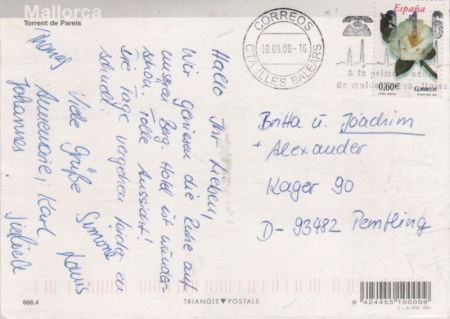 Mallorca
Torrent de Pareis
Hallo Ihr Lieben,
Wir genießen die Ruhe auf
unserem Berg. Hotel ist wunder-
schön. Tolle Aussicht!
Die Tage vergehen leider zu
schnell!
Viele Grüße
Simone
Annemarie, Karl
Johannes
CORREOS
10.09.08-16
CTA ILLES BALEARS
España
0,60€
CORREOS
Britta u. Joachim
+ Alexander
Kager 90
D-93482 Pemfling
666.4
TRIANGLE POSTALS
8 424455 100009